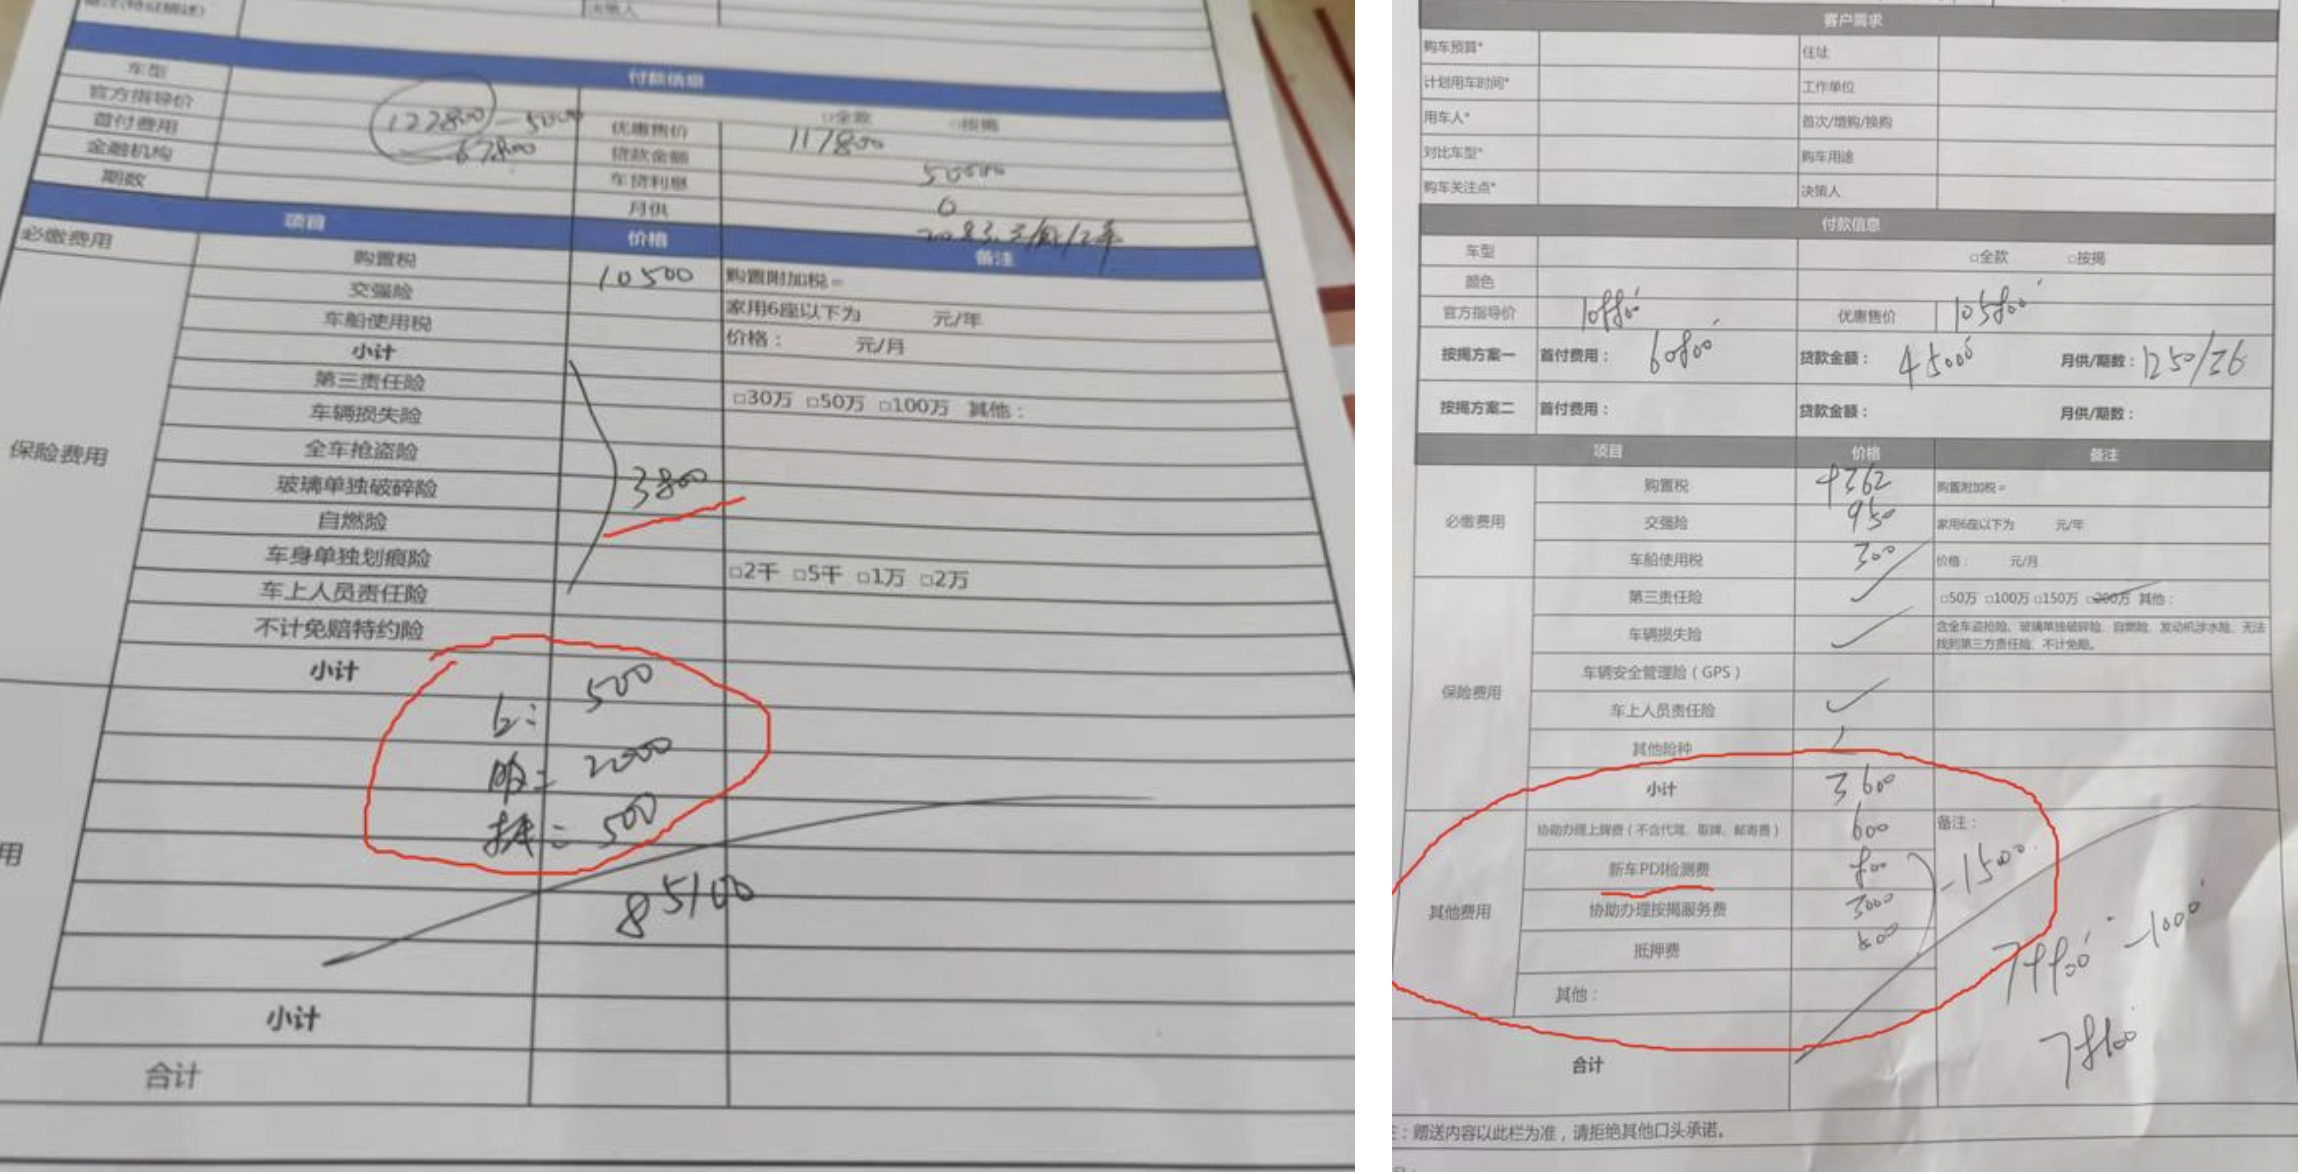 决策人
付款信息
车型
□全款 □按揭
官方指导价 122800 - 5000 优惠售价 117800
首付费用 67800 贷款金额 50000
金融机构 车贷利息 0
期数 月供 2083.元/月/2年
项目 价格 备注
必缴费用 购置税 10500 购置附加税=
交强险 家用6座以下为 元/年
车船使用税 价格: 元/月
小计
保险费用
第三责任险 □30万 □50万 □100万 其他:
车辆损失险
全车抢盗险
玻璃单独破碎险 3800
自燃险
车身单独划痕险 □2千 □5千 □1万 □2万
车上人员责任险
不计免赔特约险
小计
500
服= 2000
500
用
85100
小计
合计
客户需求
购车预算* 住址
计划用车时间* 工作单位
用车人* 首次/增购/换购
对比车型* 购车用途
购车关注点* 决策人
付款信息
车型 □全款 □按揭
颜色
官方指导价 108800 优惠售价 105800
按揭方案一 首付费用: 60800 贷款金额: 45000 月供/期数: 1250/36
按揭方案二 首付费用: 贷款金额: 月供/期数:
项目 价格 备注
必缴费用
购置税 9362 购置附加税=
交强险 950 家用6座以下为 元/年
车船使用税 300 价格: 元/月
保险费用
第三责任险 □50万 □100万 □150万 □200万 其他:
车辆损失险 含全车盗抢险、玻璃单独破碎险、自燃险、发动机涉水险、无法
找到第三方责任险、不计免赔。
车辆安全管理险(GPS)
车上人员责任险
其他险种
小计 3600
其他费用
协助办理上牌费(不含代驾、取牌、邮寄费) 600 备注:
新车PDI检测费 800
协助办理按揭服务费 3000 -1500
抵押费
其他:
-1000
合计
:赠送内容以此栏为准,请拒绝其他口头承诺。